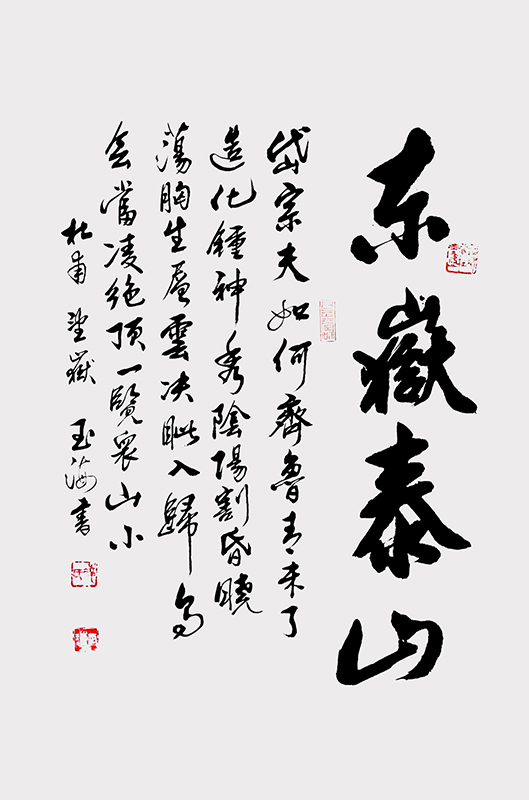 东嶽泰山
岱宗夫如何齊魯青未了
造化鍾神秀陰陽割昏曉
蕩胸生層雲决眦入歸鳥
会當凌絶頂一覽衆山小
杜甫望嶽 玉海書